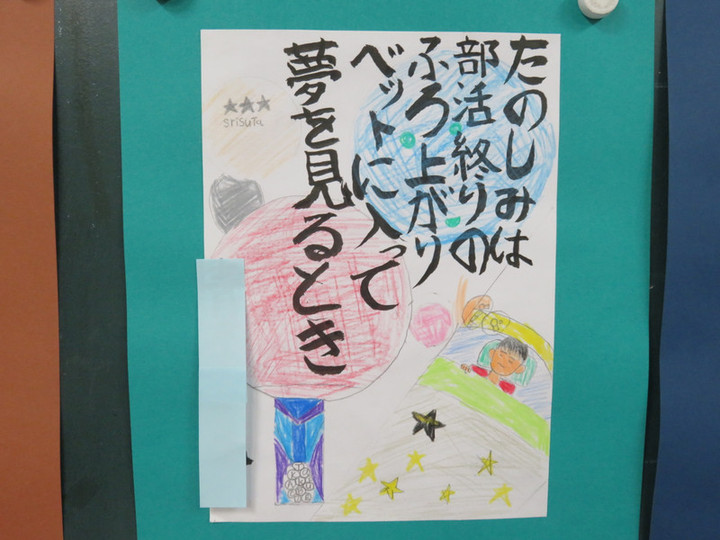 たのしみは
部活終りの
ふろ上がり
ベットに入って
夢を見るとき
srisuTa